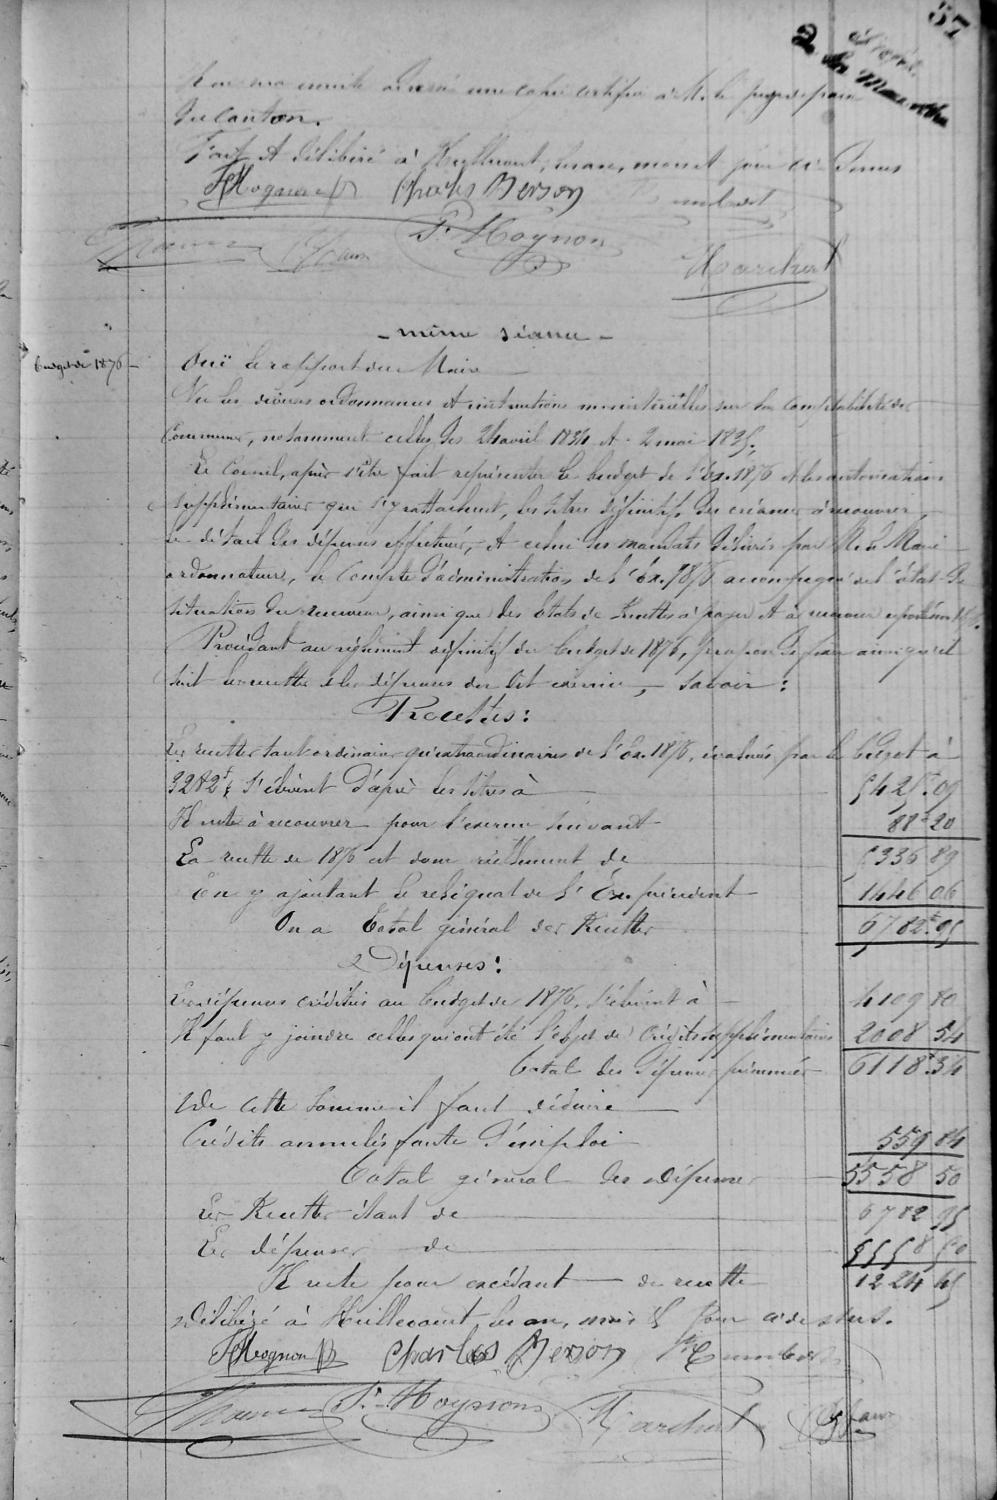 57
une copie certifiée à M. le Juge de paix
du canton.
Fait et délibéré à Huilliécourt, les an, mois et jour ci-dessus
Charles Berson
P. Mognon
Marchert
- même séance -
Budget de 1876 -
Ouï le rapport du Maire
Vu les diverses ordonnances et instructions ministérielles sur la comptabilité des
Communes, notamment celles des 24 avril 1834 et 2 mai 1835;
Le Conseil, après s'être fait représenter le budget de l'Ex. 1876 et les autorisations
supplémentaires qui s'y rattachent, les titres définitifs des créances à recouvrer,
le détail des dépenses effectuées, et celui des mandats délivrés par M. le Maire
ordonnateur, le Compte d'administration de l'Ex. 1876 accompagné de l'état de
situation du receveur, ainsi que des états de Recettes à payer et à recouvrer
Procédant au règlement définitif du budget de 1876, propose de fixer ainsi qu'il
suit les recettes et les dépenses du dit exercice, savoir :
Recettes :
Les recettes tant ordinaires qu'extraordinaires de l'Ex. 1876, évaluées par le budget à
s'élèvent d'après les titres à 5425f.09
Il reste à recouvrer pour l'exercice suivant 88f 20
La recette de 1876 est donc réellement de 5336 89
En y ajoutant le reliquat de l'Ex. précédent 1446 06
On a Total général des Recettes 6782f.95
Dépenses :
Les dépenses créditées au budget de 1876 s'élèvent à 4109 80
Il faut y joindre celles qui ont été l'objet de Crédits supplémentaires 2008 54
Total des dépenses présumées 6118f.34
De cette somme il faut déduire
Crédits annulés faute d'emploi 559 84
Total général des Dépenses 5558 50
Les Recettes étant de 6782 95
Les dépenses de 5558 50
Il reste pour excédant de recette 1224 45
Délibéré à Huilliécourt, les an, mois et jour ci-dessus.
Charles Berson
P. Mognon
Marchert